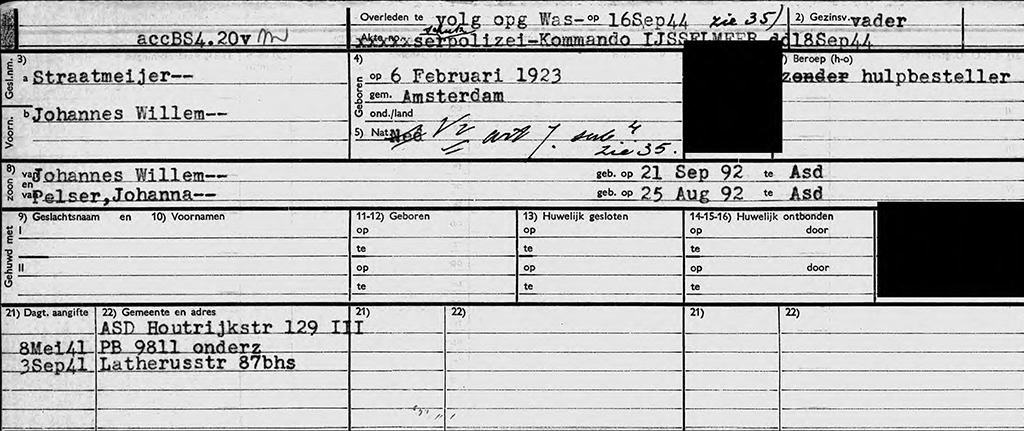 accBS4.20v
Overleden te volg opg Was- op 16Sep44 zie 35)
2) Gezinsv. vader
Akte no. xxxxxserpolizei-Kommando IJSSELMEER dd18Sep44
schutz
3)
Gesl.nm. a Straatmeijer--
Voorn. b Johannes Willem--
4)
Geboren op 6 Februari 1923
gem. Amsterdam
ond./land
5) Nat. Ned V2 art 7. sub 4
zie 35.
) Beroep (h-o)
zonder hulpbesteller
8) zoon van Johannes Willem-- geb. op 21 Sep 92 te Asd
en van Pelser,Johanna-- geb. op 25 Aug 92 te Asd
Gehuwd met
9) Geslachtsnaam en 10) Voornamen
11-12) Geboren
13) Huwelijk gesloten
14-15-16) Huwelijk ontbonden
I op op op door
te te te
II op op op door
te te te
21) Dagt. aangifte 22) Gemeente en adres 21) 22) 21) 22)
ASD Houtrijkstr 129 III
8Mei41 PB 9811 onderz
3Sep41 Latherusstr 87bhs